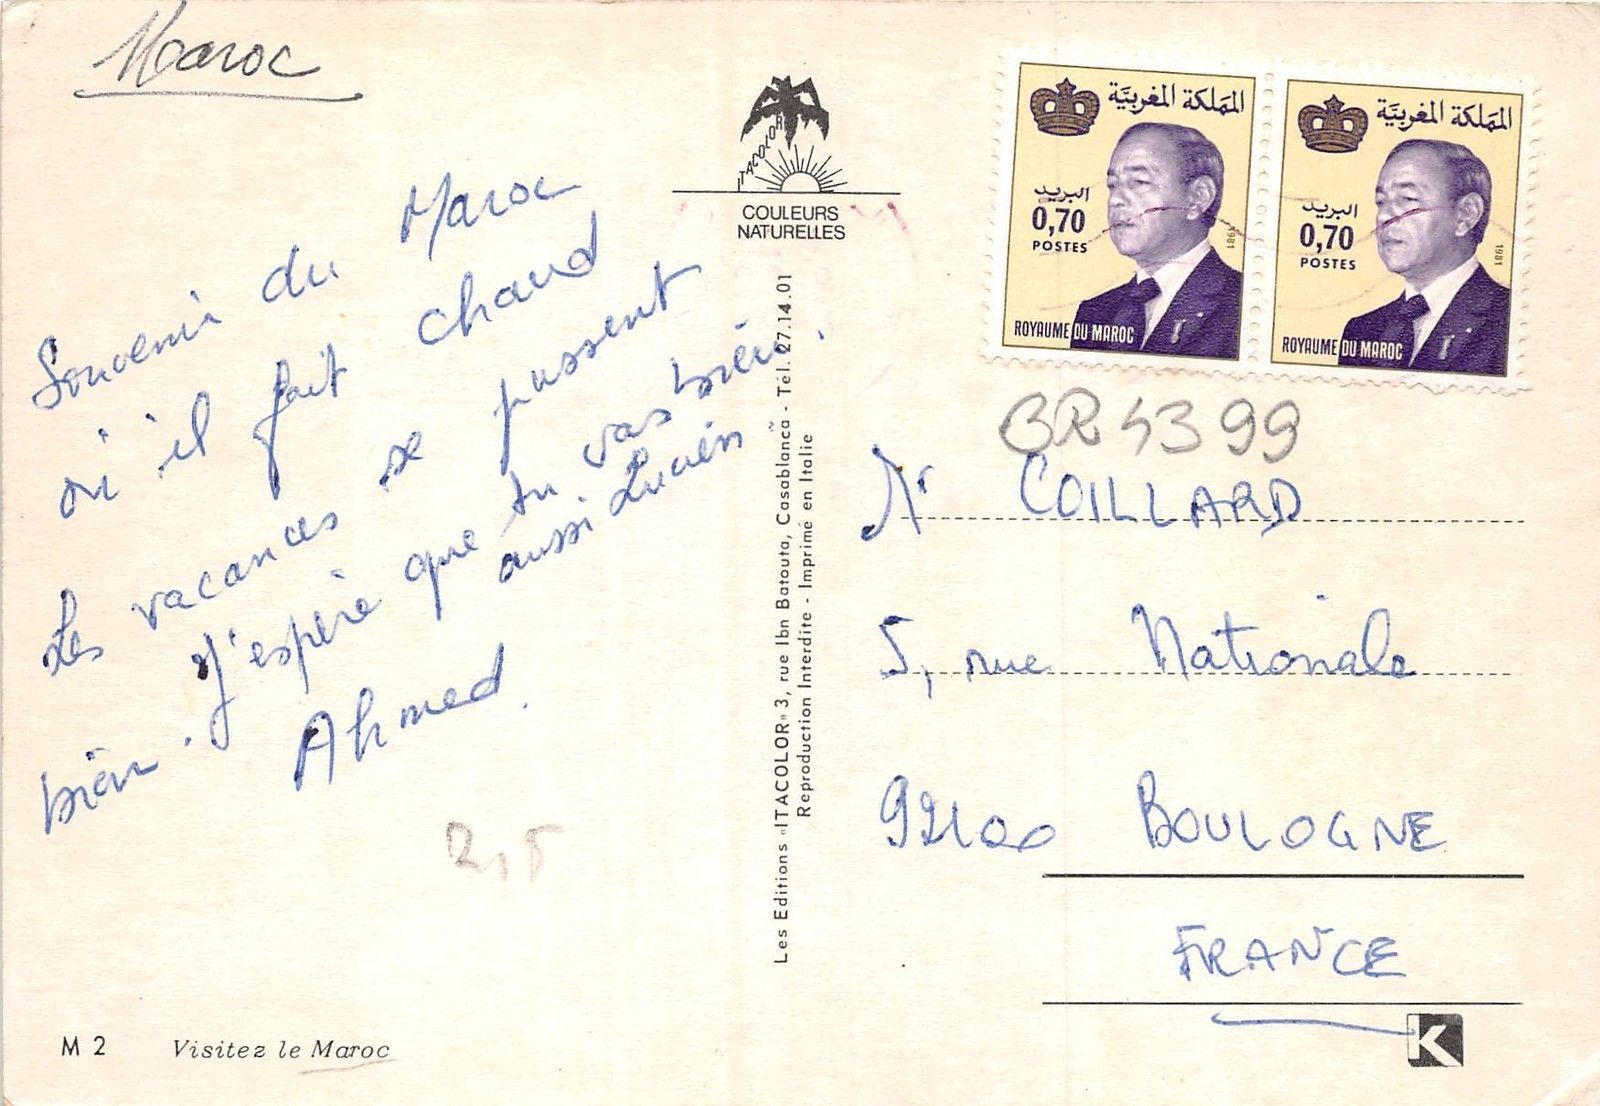 Maroc
Souvenir du Maroc
où il fait chaud
Les vacances se passent
bien. J'espère que tu vas bien.
aussi Lucien
Ahmed.
M 2 Visitez le Maroc
ITACOLOR
COULEURS
NATURELLES
Les Editions «ITACOLOR» 3, rue Ibn Batouta, Casablanca - Tél. 27.14.01
Reproduction Interdite - Imprimé en Italie
المملكة المغربية
البريد
0,70
POSTES
1981
ROYAUME DU MAROC
المملكة المغربية
البريد
0,70
POSTES
1981
ROYAUME DU MAROC
BR 4399
Mr COILLARD
5, rue Nationale
92100 BOULOGNE
FRANCE
K